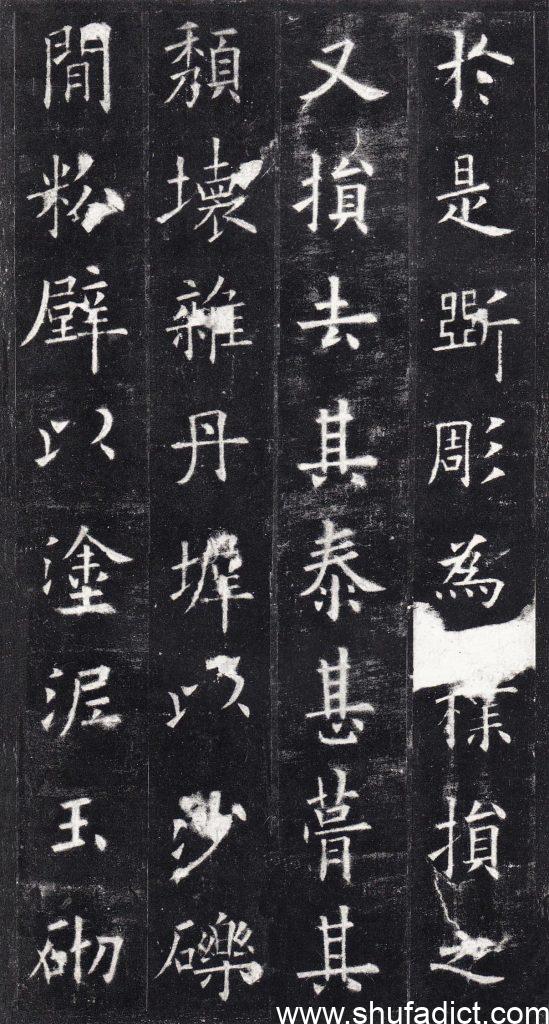 於是斲彫為樸損之
又損去其泰甚葺其
頹壞雜丹墀以沙礫
閒粉壁以塗泥玉砌
www.shufadict.com